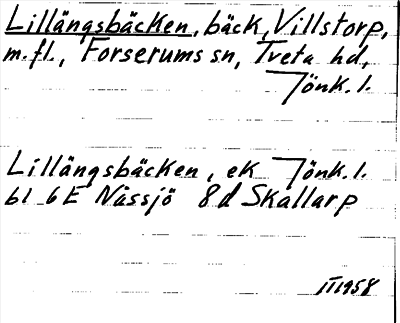 Lillängsbäcken, bäck, Villstorp,
m.fl., Forserums sn, Tveta hd,
Jönk.l.
Lillängsbäcken, ek Jönk.l.
bl 6E Nässjö 8d Skallarp
III 1958